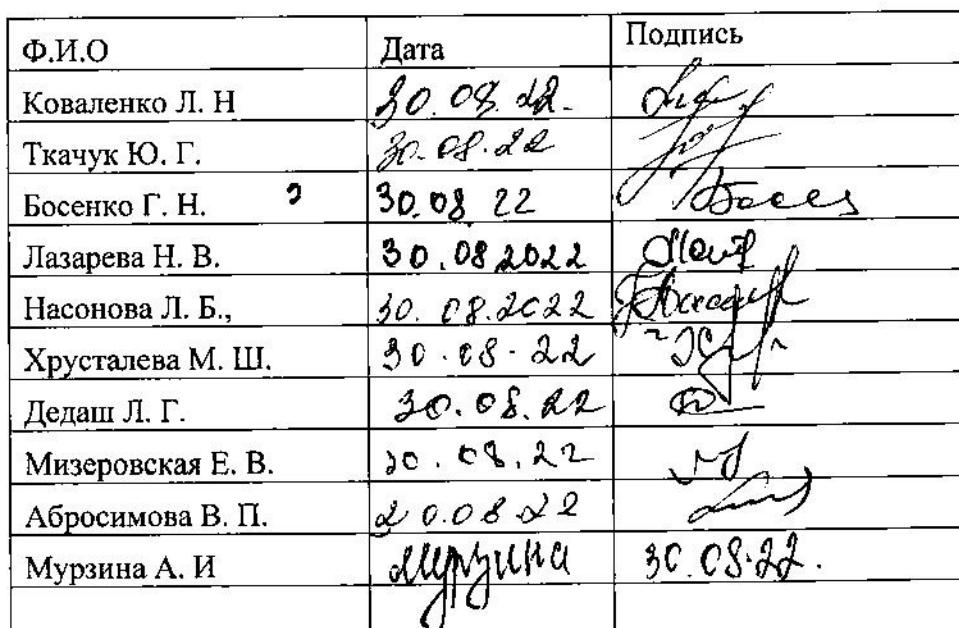 Ф.И.О Дата Подпись
Коваленко Л. Н 30.08.22.
Ткачук Ю. Г. 30.08.22
Босенко Г. Н. 30.08 22
Лазарева Н. В. 30.08 2022
Насонова Л. Б., 30.08.2022
Хрусталева М. Ш. 30.08.22
Дедаш Л. Г. 30.08.22
Мизеровская Е. В. 30.08.22
Абросимова В. П. 20.08 22
Мурзина А. И Мурзина 30.08.22.